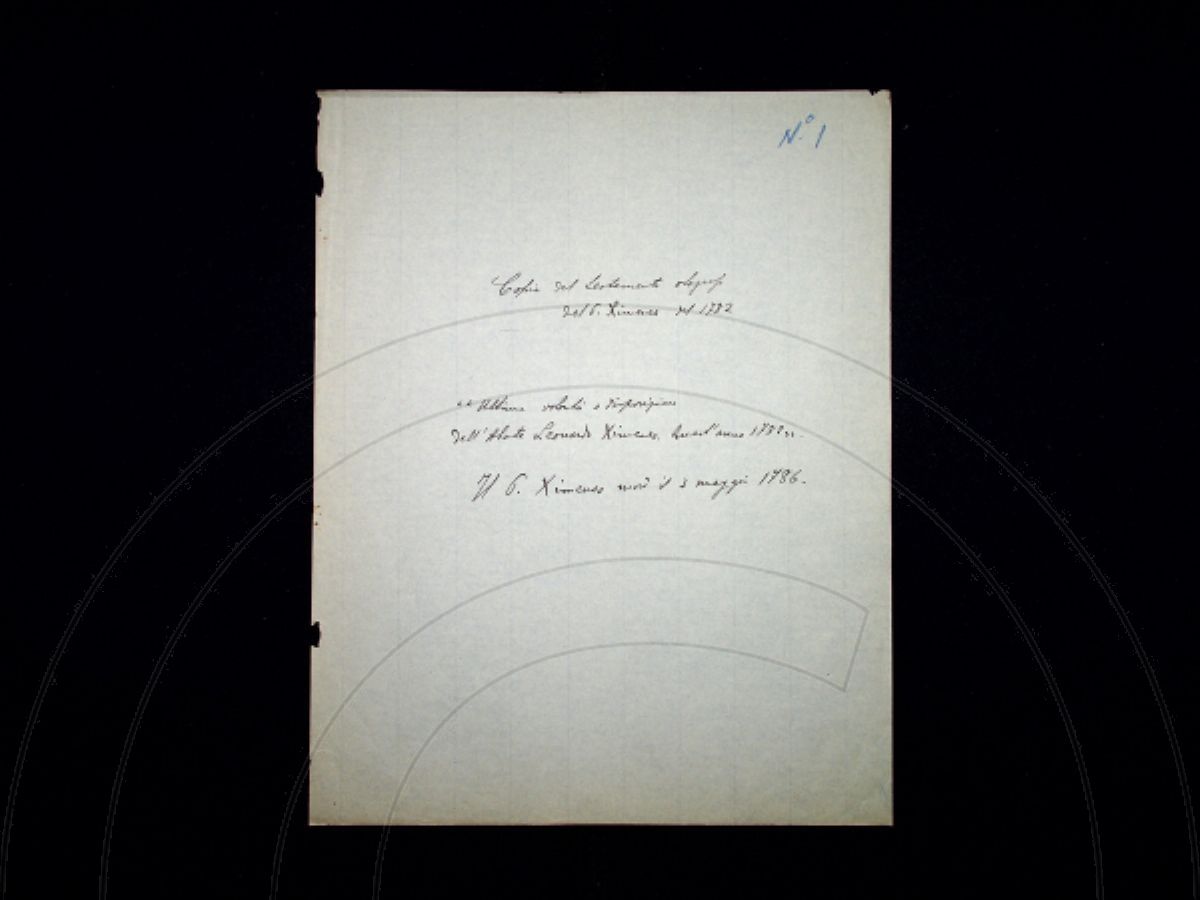 N.° 1
Copia del testamento olograf
del P. Ximenes del 1782
"Ultima volontà e disposizione
dell'Abate Leonardo Ximenes, quest'anno 1782".
Il P. Ximenes morì il 3 maggio 1786.